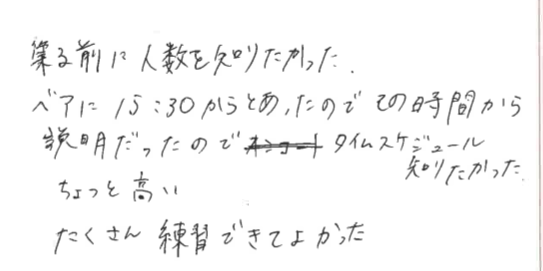 集る前に人数を知りたかった.
ペアに 15:30からとあったのでその時間から
説明だったので タイムスケジュール
知りたかった.
ちょっと高い
たくさん練習できてよかった